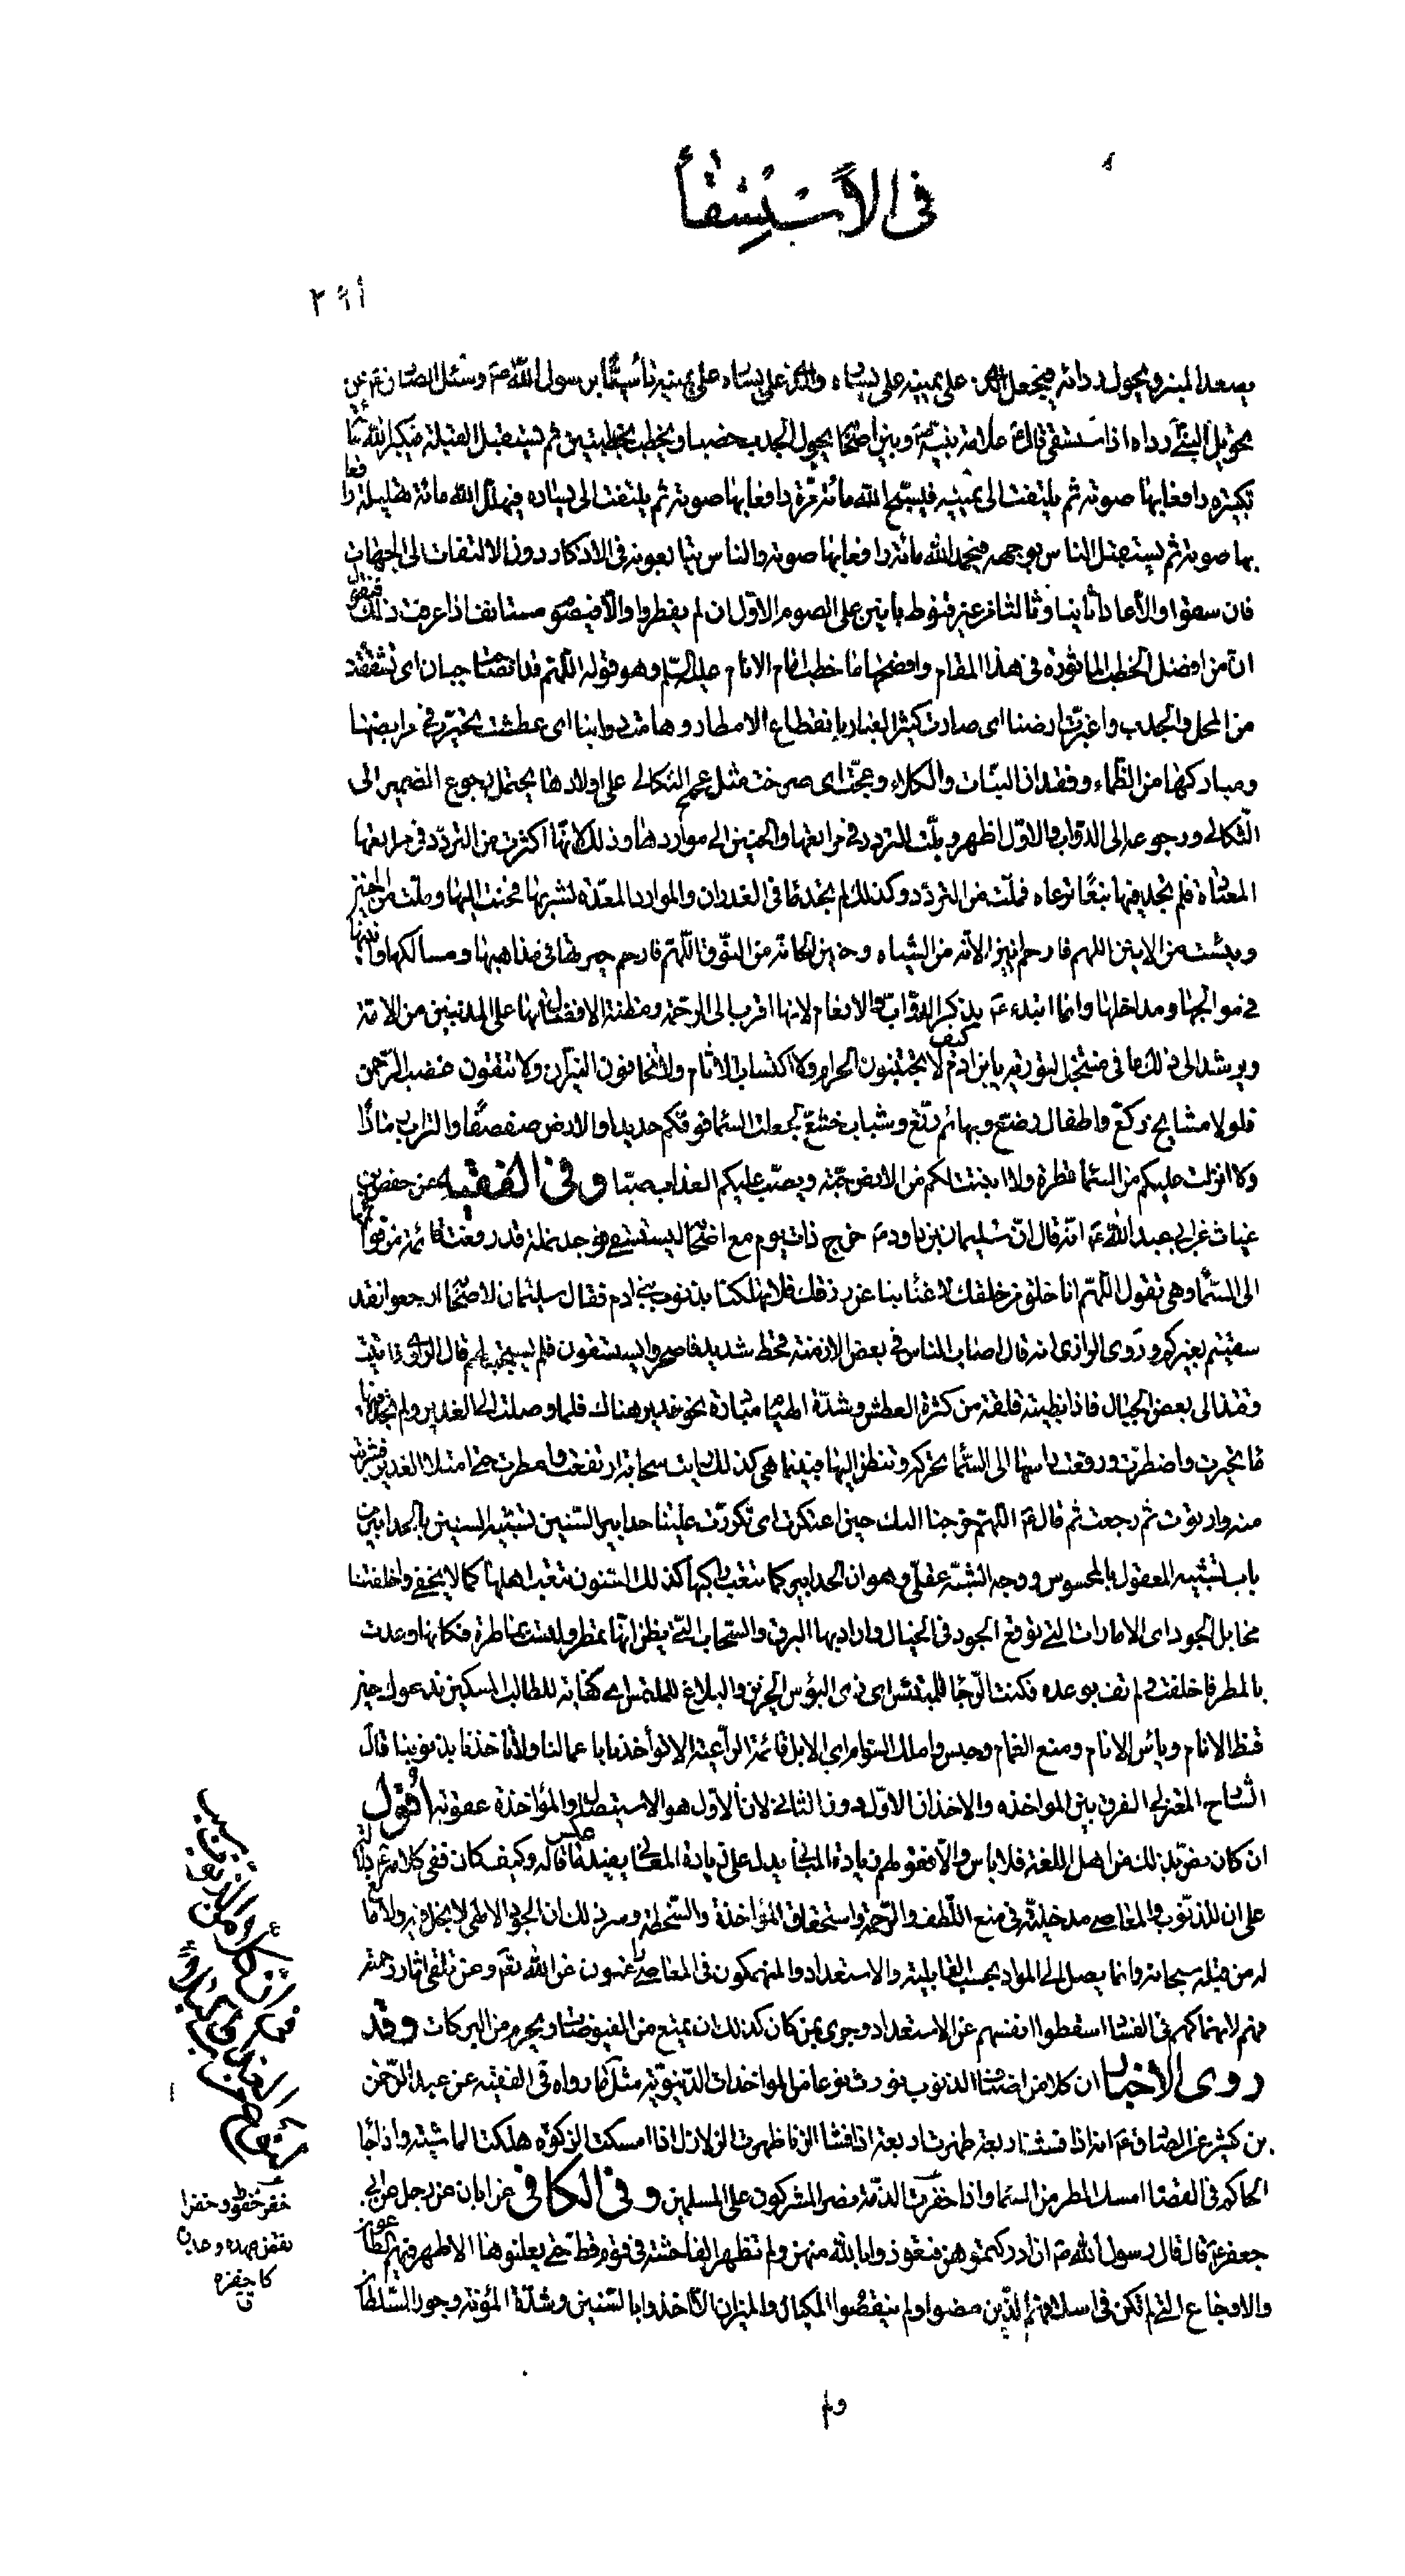 في الاستسقاء
٢٩١
يصعد المنبر ويحول ردائه فيجعل الذي على يمينه على يساره والذي على يساره على يمينه تأسيًا برسول الله ص وسئل الصادق ع عن
تحويل النبي ص رداه اذا استسقى قال ع علامة بينه وبين اصحابه يحول الجدب خصبا ويخطب بخطبتين ثم يستقبل القبلة فيكبر الله مأة
تكبيرة رافعا بها صوته ثم يلتفت الى يمينه فيسبح الله مائة مرة رافعا بها صوته ثم يلتفت الى يساره فيهلل الله مائة تهليلة رافعا
بها صوته ثم يستقبل الناس بوجهه فيحمد الله مائة رافعا بها صوته والناس يتابعونه في الاذكار دون الالتفات الى الجهات
فان سقوا والا عاد ثانيا وثالثا من غير قنوط بانين على الصوم الاول ان لم يفطروا والا فبصوم مستأنف اذا عرفت ذلك فنقول
ان من افضل الخطب الماثورة في هذا المقام وافصحها ما خطب امام الانام عليه السلم وهو قوله اللهم قد انصاحت جبالنا اى تشققت
من المحل والجدب واغبرت ارضنا اى صارت كثير الغبار بانقطاع الامطار وهامت دوابنا اى عطشت تحيرت في مرابضها
ومباركها من الظماء وفقدان النبات والكلاء وعجت اى صرخت مثل عجيج الثكالى على اولادها يحتمل رجوع الضمير الى
الثكالى ورجوعه الى الدواب والاول اظهر وملت التردد في مراتعها والحنين الى مواردها وذلك لانها اكثرت من التردد في مراتعها
المعتادة فلم تجد فيها نبتًا ترعاه فملت من التردد وكذلك لم تجد ماء في الغدران والموارد المعدة لشربها فحنت اليها وملت من الحنين
ويئست من الانين اللهم فارحم انين الانة من الشياه وحنين الحانة من النوق اللهم فارحم حيرتها في مذاهبها ومسالكها وانينها
في موالجها ومداخلها وانما ابتدء ع بذكر الدواب والانعام لانها اقرب الى الرحمة ومظنة الافضال بها على المذنبين من الامة
ويرشد الى ذلك ما في منتخل التورية يابن ادم كيف لا تجتنبون الحرام ولا اكتساب الاثام ولا تخافون النيران ولا تتقون غضب الرحمن
فلولا مشايخ ركع واطفال رضع وبهائم رتع وشباب خشع لجعلت السماء فوقكم حديدا والارض صفصفًا والتراب رمادًا
ولا انزلت عليكم من السماء قطرة ولا انبتت لكم من الارض حبة ويصب عليكم العذاب صبا وفى الفقيه عن حفص بن
غياث عن ابى عبد الله ع انه قال ان سليمان بن داود ع خرج ذات يوم مع اصحابه ليستسقى فوجد نملة قد رفعت قائمة من قوائمها
الى السماء وهى تقول اللهم انا خلق من خلقك لا غناء بنا عن رزقك فلا تهلكنا بذنوب بنى ادم فقال سليمان لاصحابه ارجعوا لقد
سقيتم بغيركم وروى الرازى انه قال اصاب الناس في بعض الازمنة قحط شديد فاصحروا يستسقون فلم يستجب لهم قال الراوى فاتيت
وقتذ الى بعض الجبال فاذا بظبية قلقة من كثرة العطش وشدة الهيام مبادرة نحو غدير هناك فلما وصلت الى الغدير ولم تجد فيها
ماء تحيرت واضطربت ورفعت راسها الى السماء تحركه وتنظر اليها فبينما هى كذلك رايت سحابة ارتفعت وامطرت حتى امتلاء الغدير فشربت
منه وارتوت ثم رجعت ثم قال ع اللهم خرجنا اليك حين اعتكرت اى تكررت علينا حدابير السنين تشبيه السنين بالحدابير من
باب تشبيه المعقول بالمحسوس ووجه الشبه عقلى وهو ان الحدابير كما تتعب راكبها كذلك السنون تتعب اهلها كما لا يخفى واخلفتنا
مخايل الجود اى الامارات التى توقع الجود في الخيال واراد بها البرق والسحاب التى يظن انها تمطر وليست بماطرة فكانها وعدت
بالمطر فاخلفت ولم تف بوعده فكنت الرجا للمبتئس اى ذى البؤس الحزين والبلاغ للملتمس اى كفاية للطالب المسكين ندعوك حين
قنط الانام ويأس الانام ومنع الغمام وحبس وهلك السوام اى الابل قائمة الراعية الا تؤاخذنا باعمالنا ولا تأخذنا بذنوبنا قال
الشارح المعتزلى الفرق بين المواخذه والاخذ ان الاول دون الثانى لان الاول هو الاستيصال والمؤاخذة عقوبة اقول
ان كان مضربه ذلك من اهل اللغة فلا باس والا فقولهم زيادة المبانى يدل على زيادة المعانى يفيد عكس ما قاله وكيف كان ففى كلامه ع دلالة
على ان للذنوب والمعاصى مدخلية في منع اللطف والرحمة واستحقاق المؤاخذة والسخطة وسر ذلك ان الجود الالهى لا بخل فيه ولا مانع
له من قبله سبحانه وانما يصل الى المواد بحسب القابلية والاستعداد والمنهمكون في المعاصى راغبون عن الله تعم وعن تلقى اثار رحمته
فهم لانهماكهم في الفساد اسقطوا انفسهم عن الاستعداد وحرى بمن كان كذلك ان يمنع من الفيوضات ويحرم من البركات وقد
روى الأخبار ان كلا من اصناف الذنوب يورث نوعا من المواخذات الدنيوية مثل ما رواه في الفقيه عن عبد الرحمن
بن كثير عن الصادق ع انه اذا فشت اربعة ظهرت اربعة اذا فشا الزنا ظهرت الزلازل اذا امسكت الزكوة هلكت الماشية واذا جار
الحاكم في القضاء امسك المطر من السماء واذا خفرت الذمة نصر المشركون على المسلمين وفى الكافى عن ابان عن رجل عن ابى
جعفر ع قال قال رسول الله ص ان ادركتموهن فتعوذوا بالله منهن ولم تظهر الفاحشة في قوم قط حتى يعلنوها الا ظهر فيهم الطاعون
والاوجاع التى لم تكن في اسلافهم الذين مضوا ولم ينقصوا المكيال والميزان الا اخذوا بالسنين وشدة المؤنة وجور السلطان
خفر خفرا وخفورا
نقض عهده وغدره
كاخفره
ق
ولم